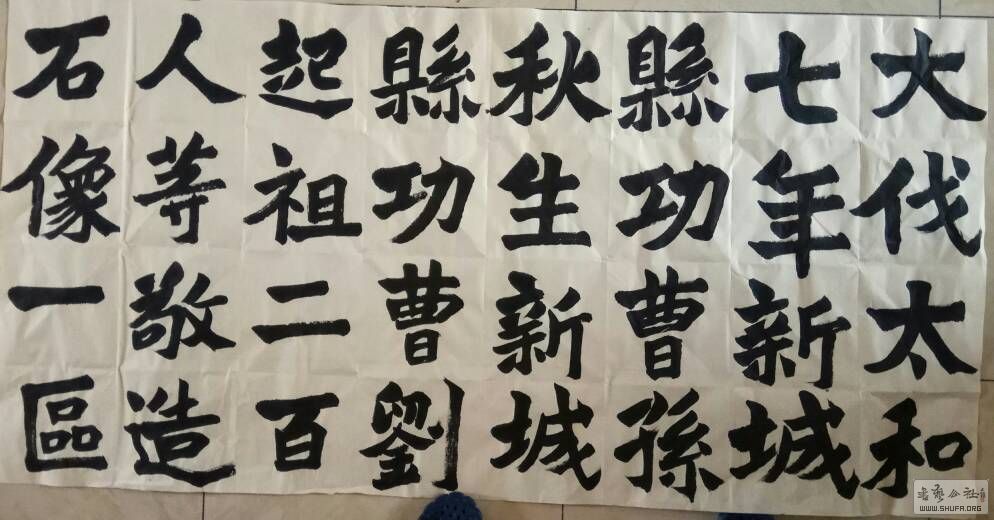 大伐太和
七年新城
縣功曹孫
秋生新城
縣功曹劉
起祖二百
人等敬造
石像一區
書藝公社
WWW.SHUFA.ORG